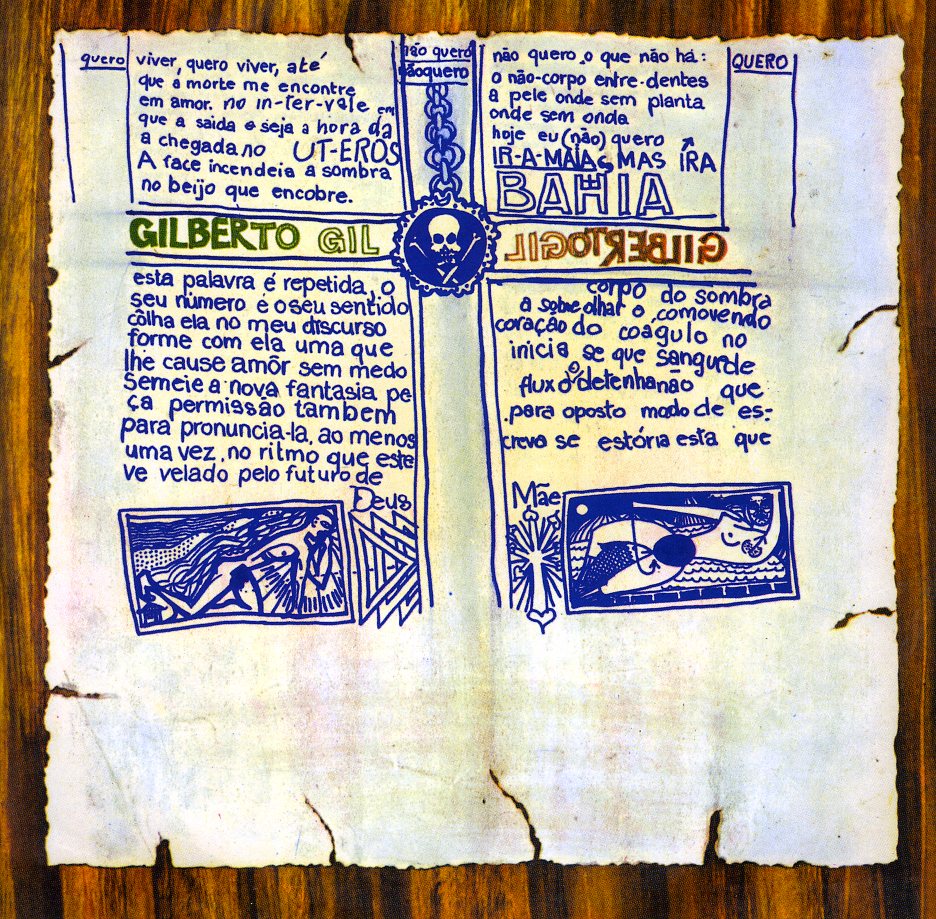 quero
viver, quero viver, até
que a morte me encontre
em amor. no in-ter-vale em
que a saida e seja a hora da
a chegada no UT-EROS
A face incendeia a sombra
no beijo que encobre.
não quero
não quero
não quero o que não há:
o não-corpo entre-dentes
a pele onde sem planta
onde sem onda
hoje eu (não) quero
IR-A-MAIAS MAS ÍRA
BAHIA
QUERO
GILBERTO GIL
GILBERTO GIL
esta palavra é repetida, o
seu número e o seu sentido
côlha ela no meu discurso
forme com ela uma que
lhe cause amôr sem medo
Semeie a nova fantasia pe
ça permissão tambem
para pronuncia-la, ao menos
uma vez, no ritmo que este
ve velado pelo futuro de
Deus
corpo do sombra
a sobre olhar o comovendo
coração do coagulo no
inicia se que sangue de
flux o o detenha não que
para oposto modo de es-
crevo se estória esta que
Mãe